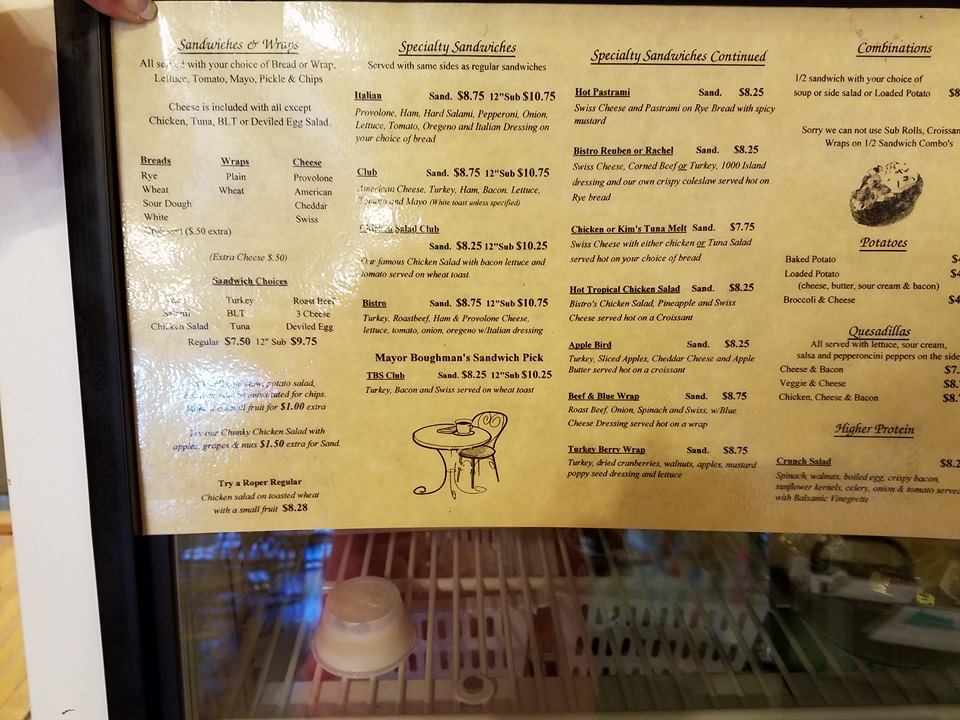 Sandwiches & Wraps
All served with your choice of Bread or Wrap,
Lettuce, Tomato, Mayo, Pickle & Chips
Cheese is included with all except
Chicken, Tuna, BLT or Deviled Egg Salad.
Breads Wraps Cheese
Rye Plain Provolone
Wheat Wheat American
Sour Dough Cheddar
White Swiss
Croissant ($.50 extra)
(Extra Cheese $.50)
Sandwich Choices
Turkey Roast Beef
Salami BLT 3 Cheese
Chicken Salad Tuna Deviled Egg
Regular $7.50 12" Sub $9.75
potato salad,
substituted for chips.
fruit for $1.00 extra
Try our Chunky Chicken Salad with
apples, grapes & nuts $1.50 extra for Sand.
Try a Roper Regular
Chicken salad on toasted wheat
with a small fruit $8.28
Specialty Sandwiches
Served with same sides as regular sandwiches
Italian Sand. $8.75 12"Sub $10.75
Provolone, Ham, Hard Salami, Pepperoni, Onion,
Lettuce, Tomato, Oregeno and Italian Dressing on
your choice of bread
Club Sand. $8.75 12"Sub $10.75
American Cheese, Turkey, Ham, Bacon. Lettuce,
Tomato and Mayo (White toast unless specified)
Chicken Salad Club
Sand. $8.25 12"Sub $10.25
Our famous Chicken Salad with bacon lettuce and
tomato served on wheat toast.
Bistro Sand. $8.75 12"Sub $10.75
Turkey, Roastbeef, Ham & Provolone Cheese,
lettuce, tomato, onion, oregeno w/Italian dressing
Mayor Boughman's Sandwich Pick
TBS Club Sand. $8.25 12"Sub $10.25
Turkey, Bacon and Swiss served on wheat toast
Specialty Sandwiches Continued
Hot Pastrami Sand. $8.25
Swiss Cheese and Pastrami on Rye Bread with spicy
mustard
Bistro Reuben or Rachel Sand. $8.25
Swiss Cheese, Corned Beef or Turkey, 1000 Island
dressing and our own crispy coleslaw served hot on
Rye bread
Chicken or Kim's Tuna Melt Sand. $7.75
Swiss Cheese with either chicken or Tuna Salad
served hot on your choice of bread
Hot Tropical Chicken Salad Sand. $8.25
Bistro's Chicken Salad, Pineapple and Swiss
Cheese served hot on a Croissant
Apple Bird Sand. $8.25
Turkey, Sliced Apples, Cheddar Cheese and Apple
Butter served hot on a croissant
Beef & Blue Wrap Sand. $8.75
Roast Beef, Onion, Spinach and Swiss, w/Blue
Cheese Dressing served hot on a wrap
Turkey Berry Wrap Sand. $8.75
Turkey, dried cranberries, walnuts, apples, mustard
poppy seed dressing and lettuce
Combinations
1/2 sandwich with your choice of
soup or side salad or Loaded Potato $8
Sorry we can not use Sub Rolls, Croissan
Wraps on 1/2 Sandwich Combo's
Potatoes
Baked Potato $4
Loaded Potato $4
(cheese, butter, sour cream & bacon)
Broccoli & Cheese $4
Quesadillas
All served with lettuce, sour cream,
salsa and pepperoncini peppers on the side
Cheese & Bacon $7.
Veggie & Cheese $8.
Chicken, Cheese & Bacon $8.
Higher Protein
Crunch Salad $8.2
Spinach, walnuts, boiled egg, crispy bacon,
sunflower kernels, celery, onion & tomato served
with Balsamic Vinegrette